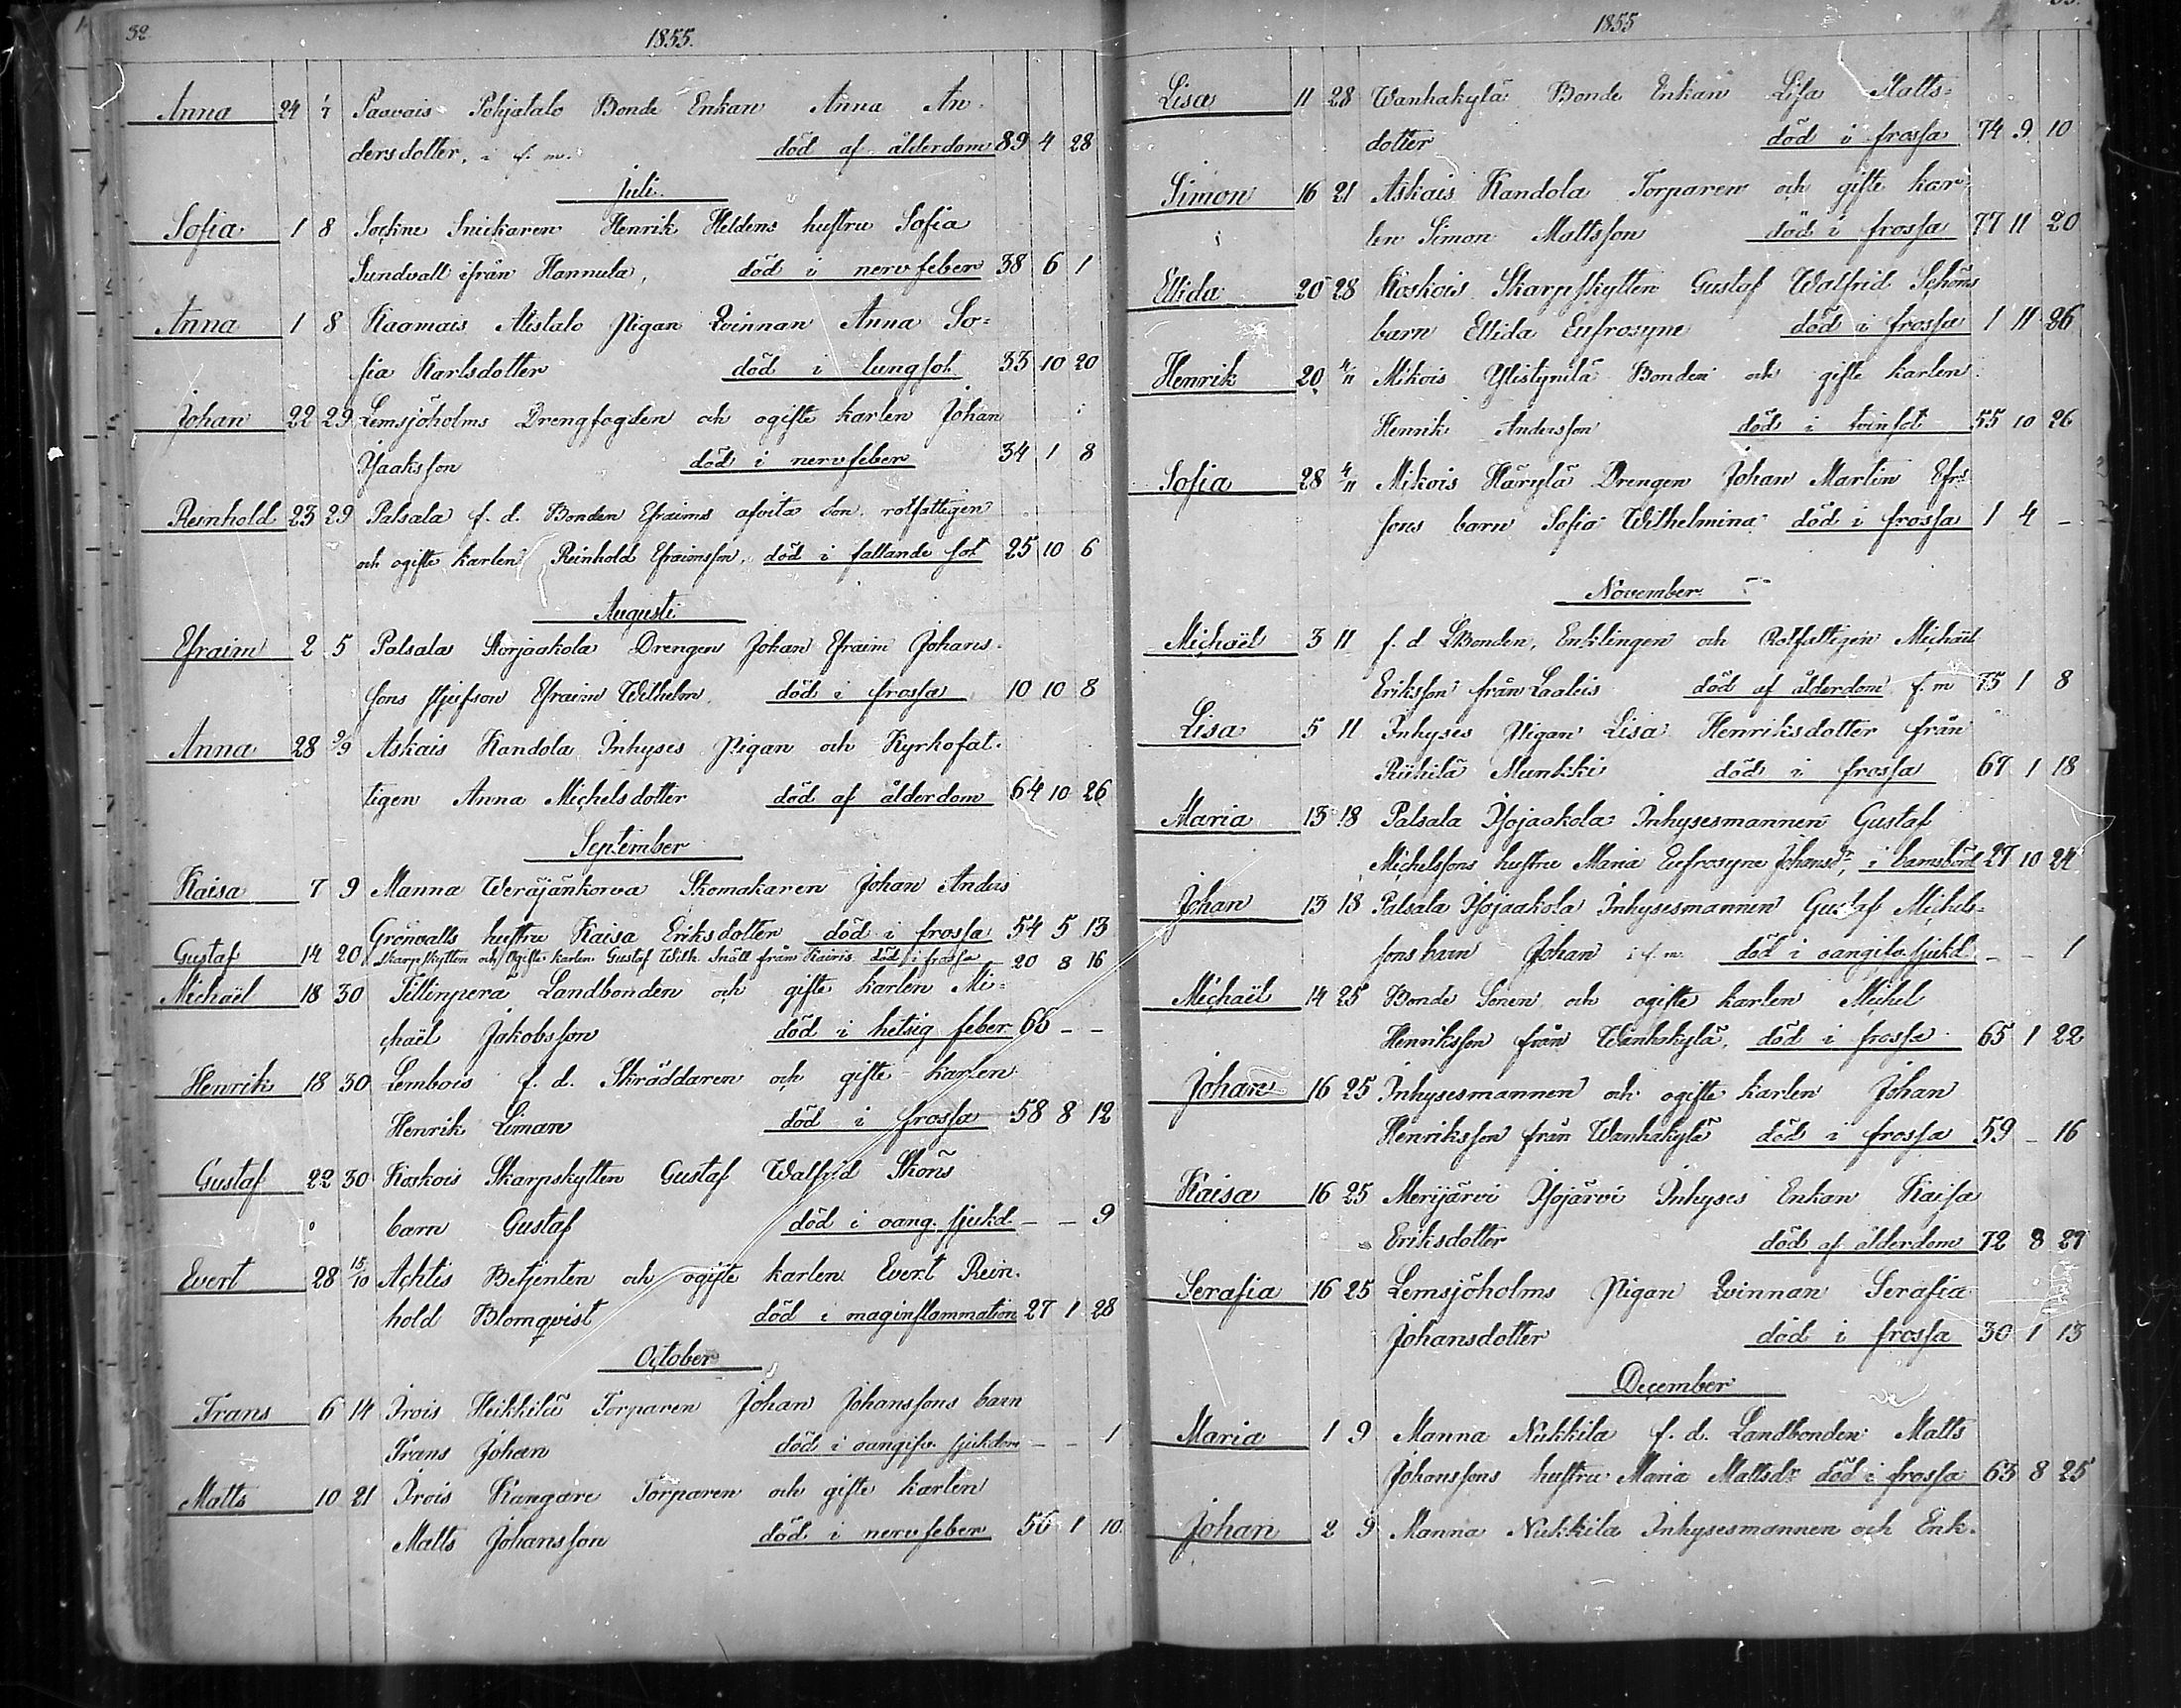 32.
1855.
Anna 24 1/7 Paavais Pohjatalo Bonde Enkan Anna An-
dersdotter, i f. m. död af ålderdom 89 4 28
Juli.
Sofia 1 8 Sockne Snickaren Henrik Heldens hustru Sofia
Sundvall ifrån Hannula, död i nervfeber 38 6 1
Anna 1 8 Kaamais Alistalo Pigan Qvinnan Anna So=
fia Karlsdotter död i lungsot 33 10 20
Johan 22 29 Lemsjöholms Drengfogden och ogifte karlen Johan
Isaaksson död i nervfeber 34 1 8
Reinhold 23 29 Palsala f. d. Bonden Efraims afvita son rotfattigen
och ogifte karlen Reinhold Efraimsson, död i fallande sot 25 10 6
Augusti
Efraim 2 5 Palsala Storjaakola Drengen Johan Efraim Johans-
sons styfson Efraim Wilhelm, död i frossa 10 10 8
Anna 28 2/9 Askais Kandola Inhyses Pigan och Kyrkofat-
tigen Anna Michelsdotter död af ålderdom 64 10 26
September
Kaisa 7 9 Manna Weräjänkorva Skomakaren Johan Anders
Grönvalls hustru Kaisa Eriksdotter död i frossa 54 5 13
Gustaf 14 20 Skarpskytten och Ogifte karlen Gustaf Wilh. Snäll från Kairis död i frossa 20 8 16
Michaël 18 30 Tillinperä Landbonden och gifte karlen Mi=
chaël Jakobsson död i hetsig feber 66 - -
Henrik 18 30 Lembois f. d. Skräddaren och gifte karlen
Henrik Liman död i frossa 58 8 12
Gustaf 22 30 Koskois Skarpskytten Gustaf Walfrid Sköns
barn Gustaf död i oang. sjukd. - - 9
Evert 28 15/10 Achtis Betjenten och ogifte karlen Evert Rein-
hold Blomqvist död i maginflammation 27 1 28
October
Frans 6 14 Irois Heikkilä Torparen Johan Johanssons barn
Frans Johan död i oangifv. sjukdom - - 1
Matts 10 21 Irois Kangare Torparen och gifte karlen
Matts Johansson död i nervfeber 56 1 10.
1855
Lisa 11 28 Wanhakylä Bonde Enkan Lisa Matts=
dotter död i frossa 74 9 10
Simon 16 21 Askais Kandola Torparen och gifte kar
len Simon Mattsson död i frossa 77 11 20
Ellida 20 28 Koskois Skarpskytten Gustaf Walfrid Schöns
barn Ellida Eufrosyne död i frossa 1 11 26
Henrik 20 4/11 Mikois Ylistynilä Bonden och gifte karlen
Henrik Andersson död i tvinsot 55 10 26
Sofia 28 4/11 Mikois Härylä Drengen Johan Martin Efr:
sons barn Sofia Wilhelmina död i frossa 1 4 -
November.
Michaël 3 11 f. d LBonden, Enklingen och Rotfattigen Michaël
Eriksson från Laaleis död af ålderdom f. m 75 1 8
Lisa 5 11 Inhyses Pigan Lisa Henriksdotter från
Riihilä Munkki död i frossa 67 1 18
Maria 13 18 Palsala Isojaakola Inhysesmannen Gustaf
Michelssons hustru Maria Eufrosyne Johansdr, i barnsbörd 27 10 24
Johan 13 18 Palsala Isojaakola Inhysesmannen Gustaf Michels=
sons barn Johan i f. m. död i oangifv. sjukd. - - 1
Michaël 14 25 Bonde Sonen och ogifte karlen Michel
Henriksson från Wanhakylä, död i frossa 65 1 22
Johan 16 25 Inhysesmannen och ogifte karlen Johan
Henriksson från Wanhakylä död i frossa 59 - 16
Kaisa 16 25 Merijärvi Isojärvi Inhyses Enkan Kaisa
Eriksdotter död af ålderdom 72 8 27
Serafia 16 25 Lemsjöholms Pigan Qvinnan Serafia
Johansdotter död i frossa 30 1 13
December
Maria 1 9 Manna Nukkila f. d. Landbonden Matts
Johanssons hustru Maria Mattsdr död i frossa 63 8 25
Johan 2 9 Manna Nukkila Inhysesmannen och Enk-